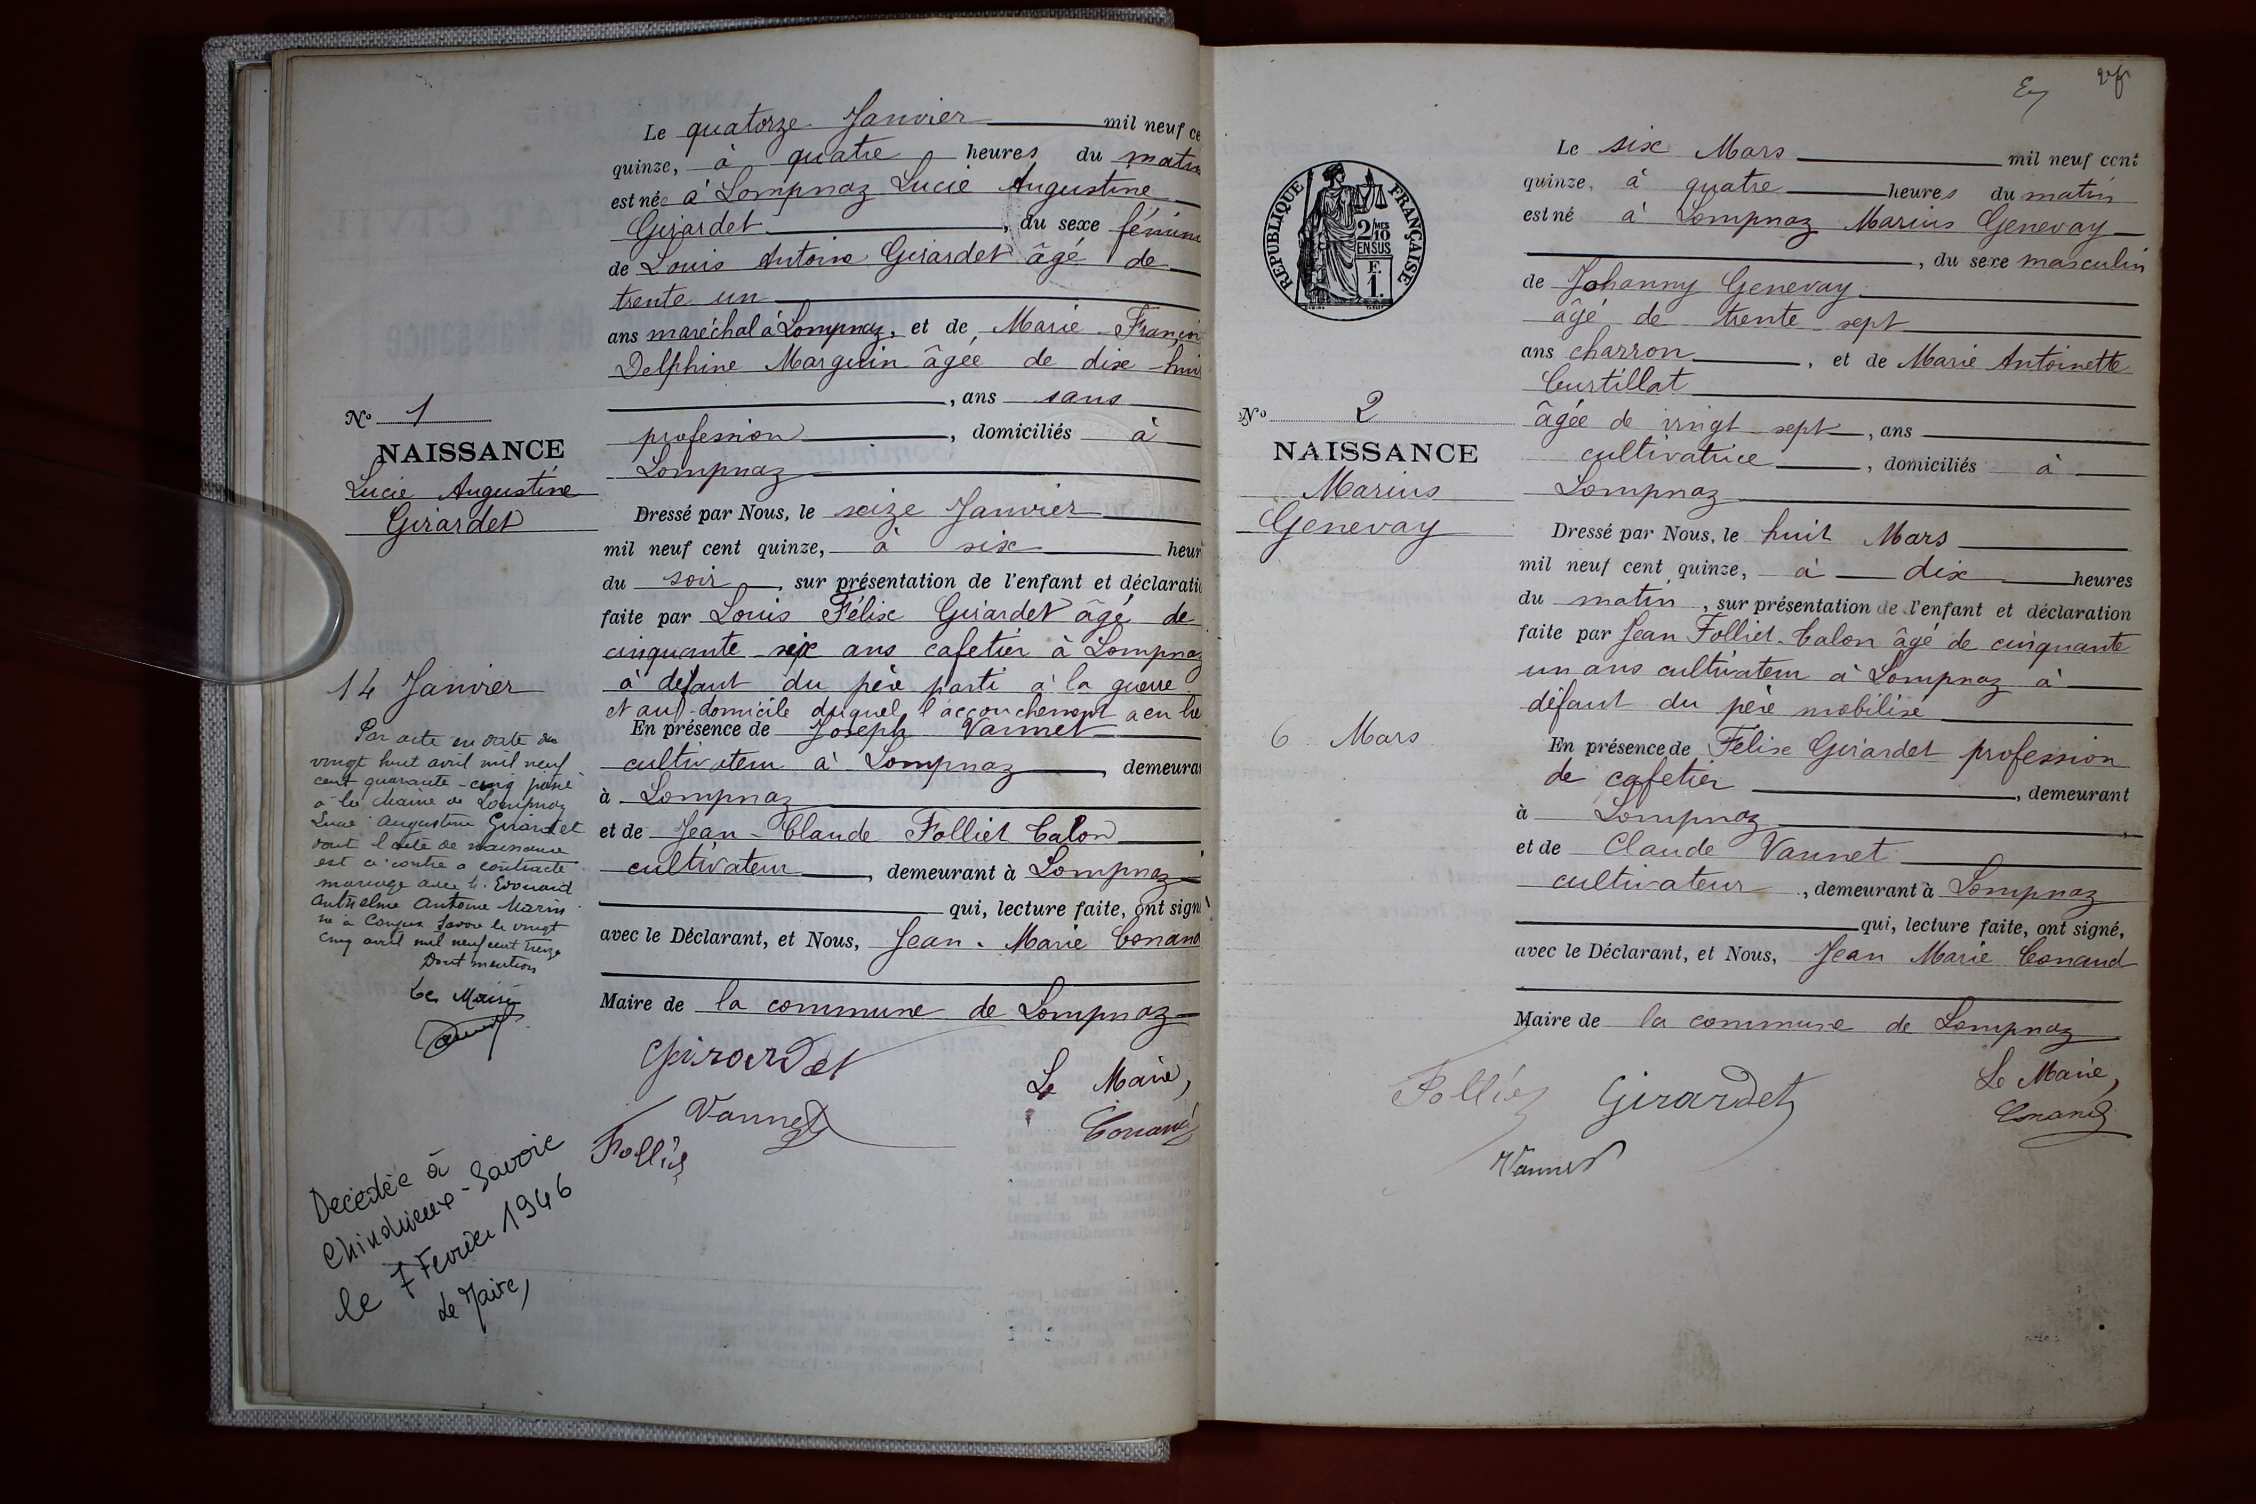 Le quatorze Janvier mil neuf ce
quinze, à quatre heures du matin
est née à Lompnaz Lucie Augustine
Girardet, du sexe fémini
de Louis Antoine Girardet âgé de
trente un
ans maréchal à Lompnaz, et de Marie Françoi
Delphine Marguin âgée de dix-hui
, ans sans
profession, domiciliés à
Lompnaz
Dressé par Nous, le seize Janvier
mil neuf cent quinze, à six heur
du soir, sur présentation de l'enfant et déclarati
faite par Louis Félix Girardet âgé de
cinquante six ans cafetier à Lompnaz
à défaut du père parti à la guerre
et au domicile duquel l'accouchement a eu lie
En présence de Joseph Vannet
cultivateur à Lompnaz, demeura
à Lompnaz
et de Jean-Claude Folliet Calon
cultivateur, demeurant à Lompnaz
qui, lecture faite, ont sign
avec le Déclarant, et Nous, Jean-Marie Conand
Maire de la commune de Lompnaz
Girardet
Le Maire,
Vannet
Conand
Folliet
No 1
NAISSANCE
Lucie Augustine
Girardet
14 Janvier
Par acte en date du
vingt huit avril mil neuf
cent quarante-cinq passé
à la mairie de Lompnaz
Lucie Augustine Girardet
dont l'acte de naissance
est ci contre a contracté
mariage avec M. Edouard
Anthelme Antoine Marin
né à Conjux Savoie le vingt
cinq avril mil neuf cent treize
Dont mention
Le Maire
Décédée à
Chindrieux-Savoie
le 7 Fevrier 1946
Le Maire,
2
REPUBLIQUE FRANÇAISE
2/10
EN SUS
F.
1.
No 2
NAISSANCE
Marius
Genevay
6 Mars
Le six Mars mil neuf cent
quinze, à quatre heures du matin
est né à Lompnaz Marius Genevay
, du sexe masculin
de Johanny Genevay
âgé de trente sept
ans charron, et de Marie Antoinette
Curtillat
âgée de vingt sept, ans
cultivatrice, domiciliés à
Lompnaz
Dressé par Nous, le huit Mars
mil neuf cent quinze, à dix heures
du matin, sur présentation de l'enfant et déclaration
faite par Jean Folliet-Calon âgé de cinquante
un ans cultivateur à Lompnaz à
défaut du père mobilisé
En présence de Félix Girardet profession
de cafetier, demeurant
à Lompnaz
et de Claude Vannet
cultivateur, demeurant à Lompnaz
qui, lecture faite, ont signé,
avec le Déclarant, et Nous, Jean Marie Conand
Maire de la commune de Lompnaz
Folliet Girardet
Le Maire,
Conand
Vannet